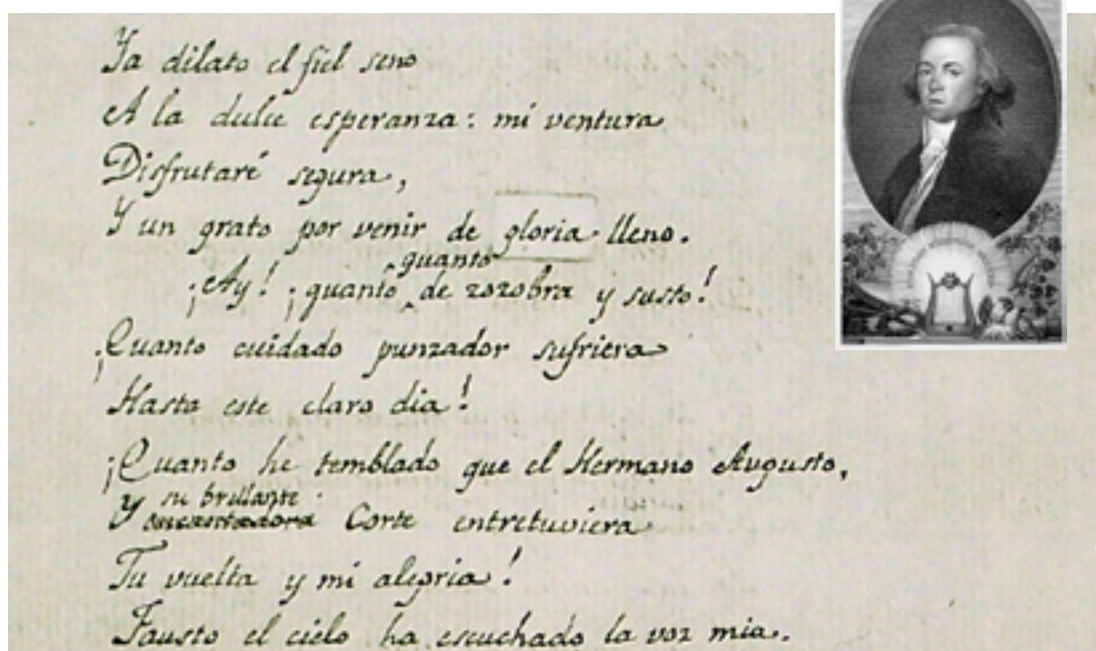 Ya dilato el fiel seno
A la dulce esperanza: mi ventura
Disfrutaré segura,
Y un grato por venir de gloria lleno.
quanto
¡Ay! ¡quanto de zozobra y susto!
¡Quanto cuidado punzador sufriera
Hasta este claro dia!
¡Quanto he temblado que el Hermano Augusto,
su brillante
Y encantadora Corte entretuviera
Tu vuelta y mi alegria!
Fausto el cielo ha escuchado la voz mia.